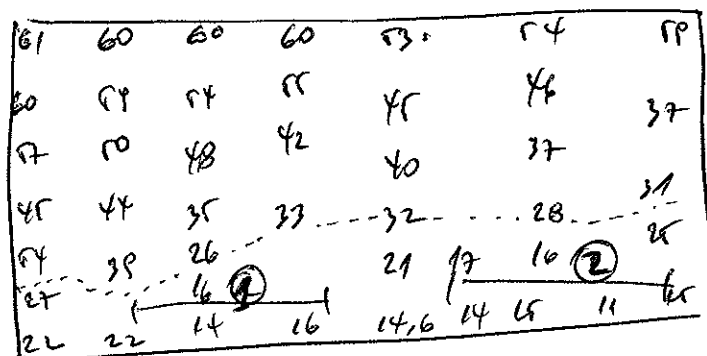 61 60 60 60 53. 54 59
60 59 54 55 45 46 37
57 50 48 42 40 37
45 44 35 33 32 28 31
54 39 26 21 17 16 ② 25
27 16 ①
22 22 14 16 14,6 14 15 11 25